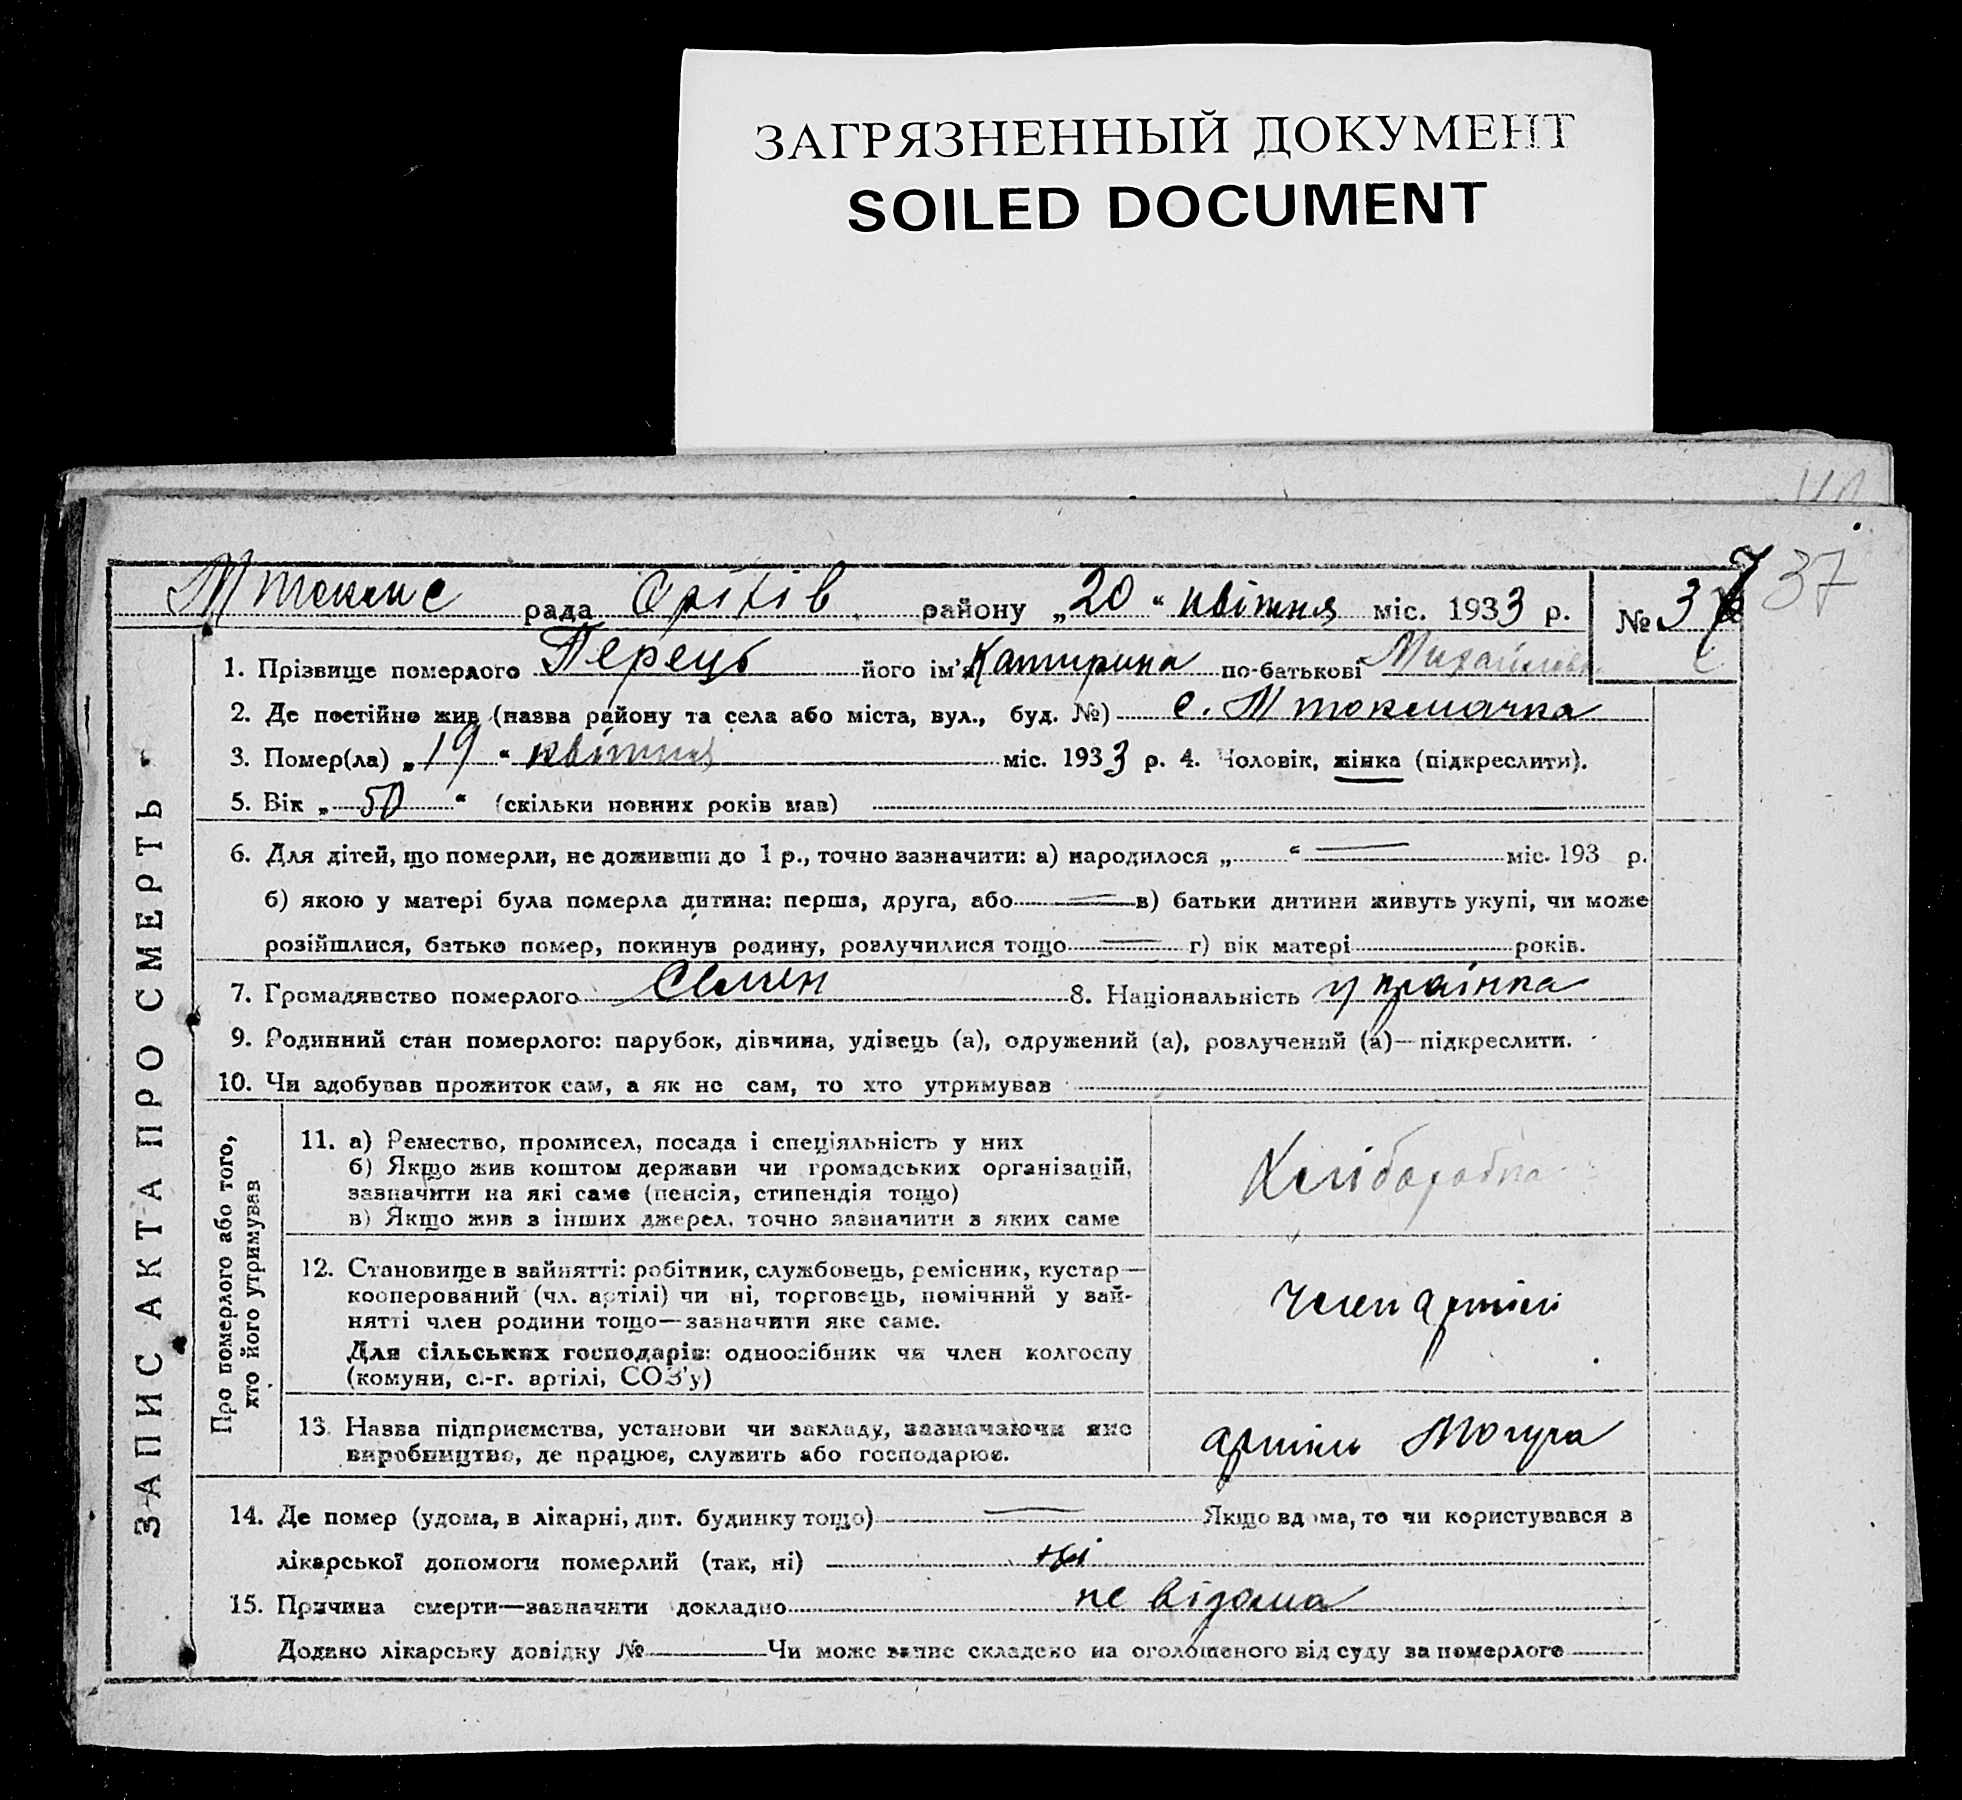 ЗАГРЯЗНЕННЫЙ ДОКУМЕНТ
SOILED DOCUMENT
37
рада Оріхів району „20“ квітня міс. 1933 р. № 37
1. Прізвище померлого Перець його ім'я Катирина по-батькові
2. Де постійно жив (назва району та села або міста, вул., буд. №) с. М токмачка
3. Помер(ла) „19“ квітня міс. 1933 р. 4. Чоловік, жінка (підкреслити).
5. Вік „50“ (скільки повних років мав)
6. Для дітей, що померли, не доживши до 1 р., точно зазначити: а) народилося „ “ міс. 193 р.
б) якою у матері була померла дитина: перша, друга, або в) батьки дитини живуть укупі, чи може
розійшлися, батько помер, покинув родину, розлучилися тощо г) вік матері років.
7. Громадянство померлого 8. Національність українка
9. Родинний стан померлого: парубок, дівчина, удівець (а), одружений (а), розлучений (а)—підкреслити.
10. Чи здобував прожиток сам, а як не сам, то хто утримував
ЗАПИС АКТА ПРО СМЕРТЬ
Про померлого або того,
хто його утримував
11. а) Ремество, промисел, посада і спеціяльність у них
б) Якщо жив коштом держави чи громадських організацій,
зазначити на які саме (пенсія, стипендія тощо)
в) Якщо жив з інших джерел, точно зазначити з яких саме
Хлібаробка
12. Становище в зайнятті: робітник, службовець, ремісник, кустар—
кооперований (чл. артілі) чи ні, торговець, помічний у зай-
нятті член родини тощо—зазначити яке саме.
Для сільських господарів: одноосібник чи член колгоспу
(комуни, с.-г. артілі, СОЗ'у)
член артілі
13. Назва підприємства, установи чи закладу, зазначаючи яке
виробництво, де працює, служить або господарює.
артіль Могура
14. Де помер (удома, в лікарні, дит. будинку тощо) Якщо вдома, то чи користувався з
лікарської допомоги померлий (так, ні) ні
15. Причина смерти—зазначити докладно не відома
Додано лікарську довідку № Чи може запис складено на оголошеного від суду за померлого